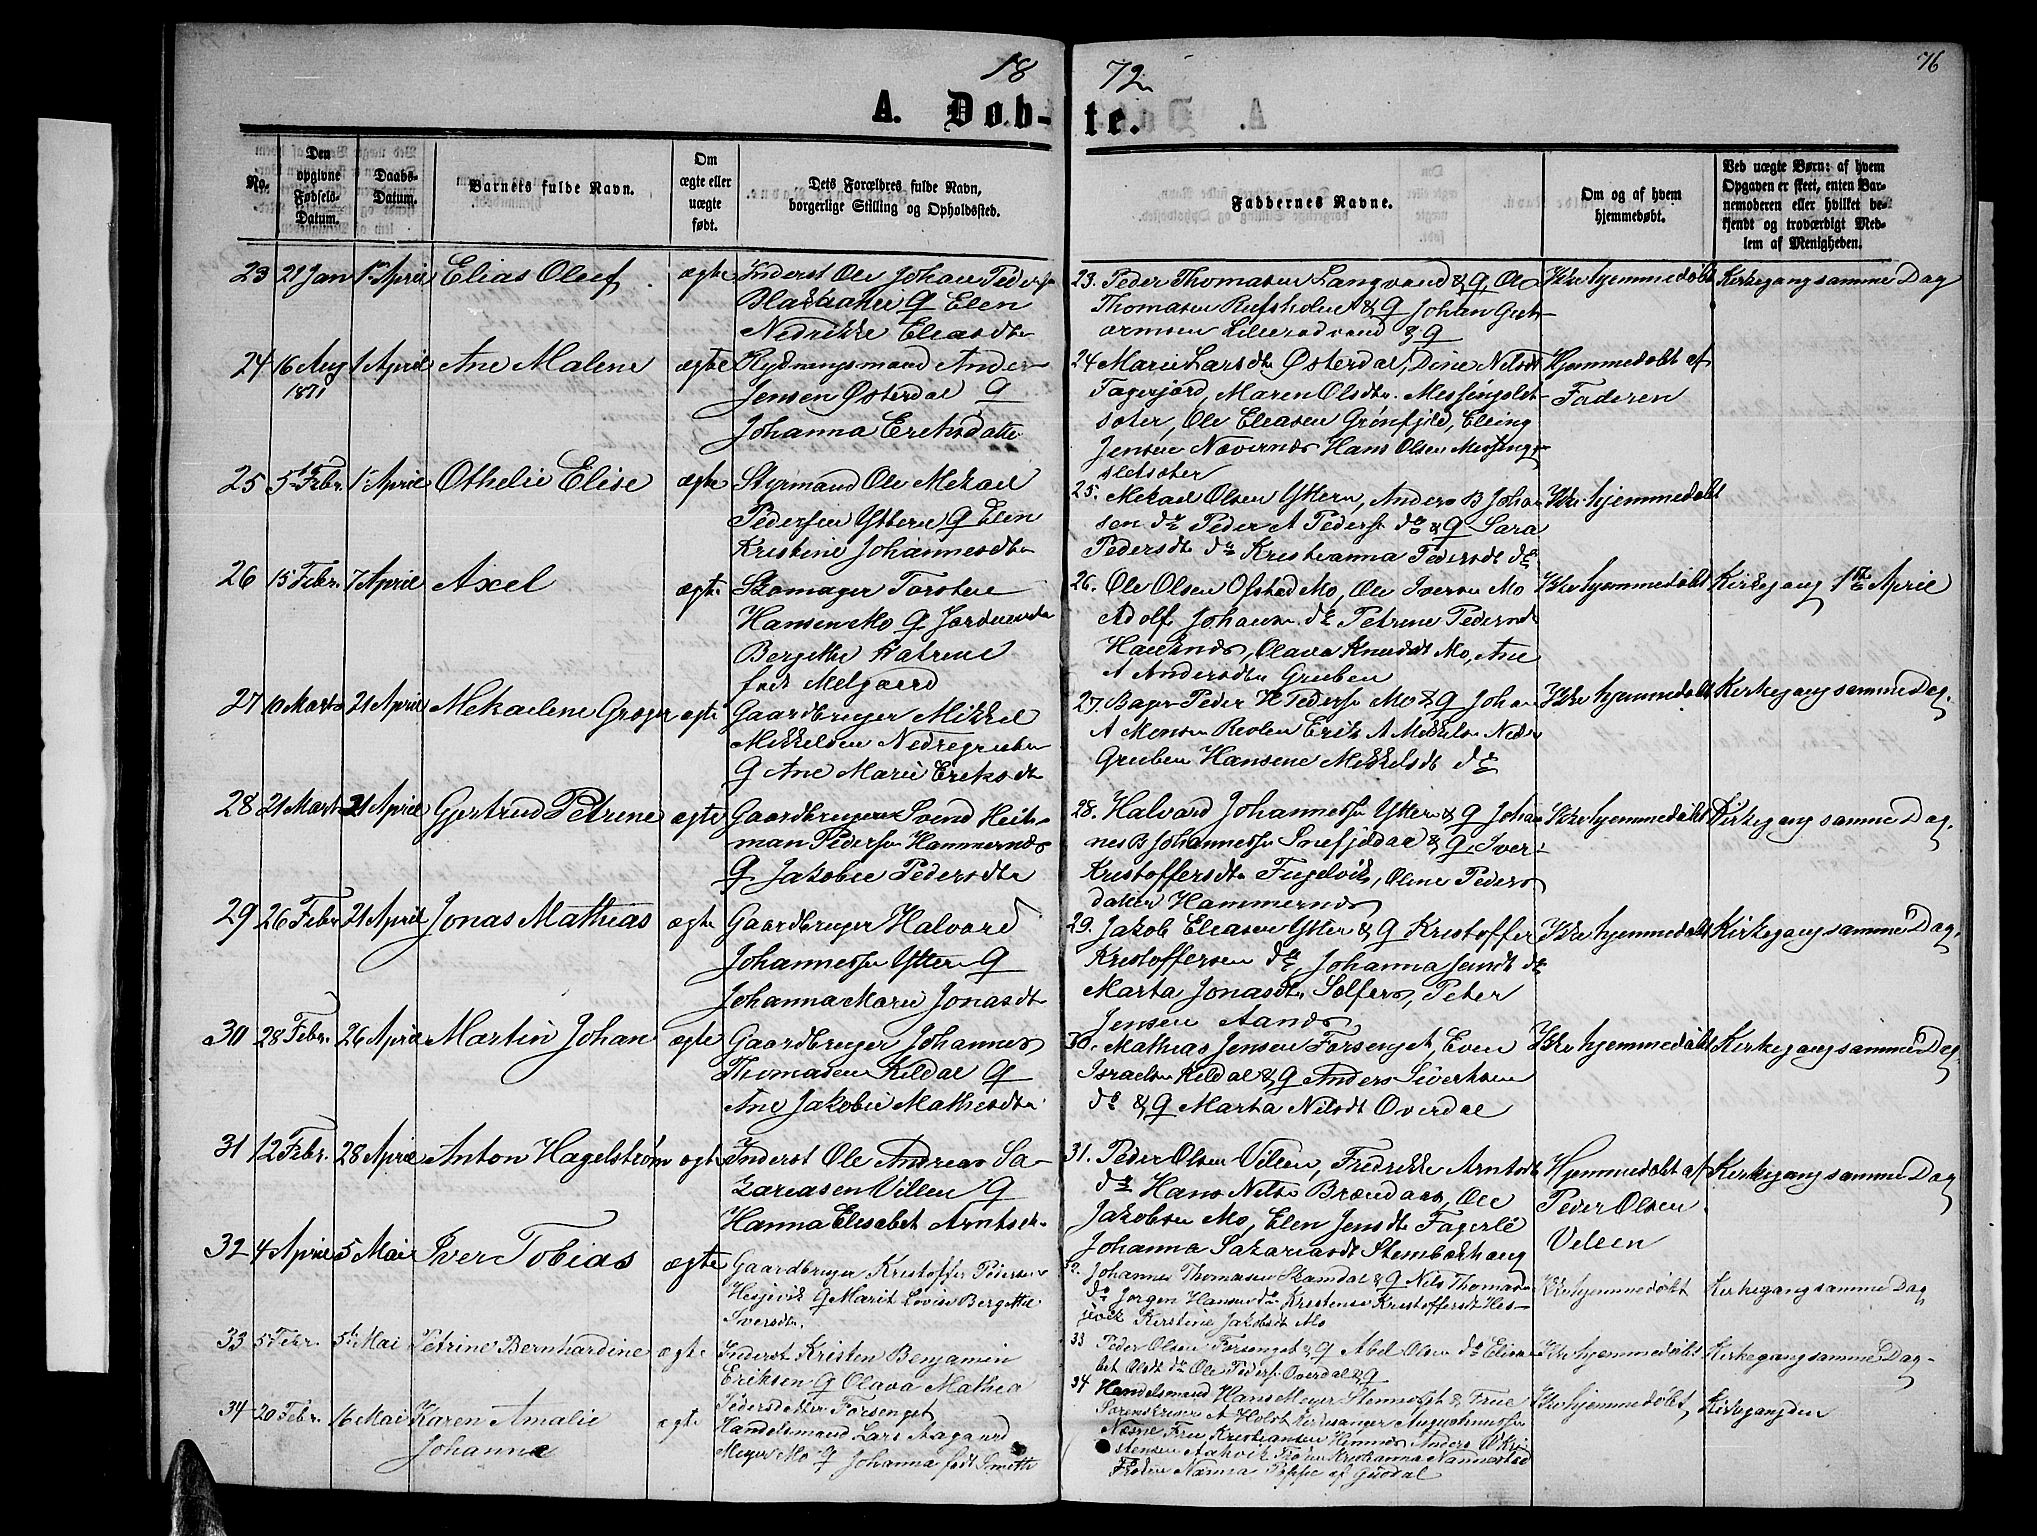 18 72
76
A. Døb-te.
No.
Den opgivne Fødsels-Datum.
Daabs-Datum.
Barnets fulde Navn.
Om ægte eller uægte født.
Dets Forældres fulde Navn, borgerlige Stilling og Opholdssted.
Faddernes Navne.
Om og af hvem hjemmedøbt.
Ved uægte Børn: af hvem Opgaven er skeet, enten Barnemoderen eller hvilket bekjendt og troværdigt Medlem af Menigheden.
23 21 Jan 1 April Elias Oluf ægte Inderst Ole Johan Peders
Elen
Eliasdtr
23. Peder Thomasen Langvand & Q, Ole
Thomasen & Q Johan Gut-
ormsen & Q
Ikke hjemmedøbt Kirkegang samme Dag
24 16 Aug 1871 1 April Ane Malene ægte Rydningsmand Anders
Jensen Østerdal Q
Johanna Eriksdatter
24 Marie Larsdtr Østerdal, Dine Nilsdt
Fagerjord, Maren Olsdtr. Messingslet-
sæter, Ole Eleasen Grønfjeld, Elling
Jensen Nævernes Hans Olsen Messing-
sletsæter
Hjemmedøbt af
Faderen
25 5te Febr. 1 April Othelie Elise ægte Styrmand Ole Mekael
Pedersen Yttern Q Elen
Kristine Johannesdtr
25. Mekael Olsen Yttern, Anders B Johan
sen do Peder A Peders do & Q Sara
Pedersdtr do Kristianna Pedersdt do
Ikke hjemmedøbt
26 15 Febr. 7 April Axel ægte Skomager Torsten
Hansen Mo Q
Bergitte Katrine
født Melgaard
26. Ole Olsen Ofsted Mo, Ole Iversen Mo
Adolf Johansen do Petrine Pedersdt
Hauknes, Olava Knudsdt Mo, Ane
A Andersdtr Gruben
Ikke hjemmedøbt Kirkegang 1ste April
27 10 Marts 21 April Mekaeline Gregersine ægte Gaardbruger Mikkel
Mikkelsen Nedregruben
Q Ane Marie Eriksdtr
27. Bager Peder H Peders Mo & Q Johan
A Monsen Revlen Erik A Mikkelsen Nedre
Gruben Hansine Mikkelsdt do
Ikke hjemmedøbt Kirkegang samme Dag.
28 21 Marts 21 April Gjertrud Petrine ægte Gaardbruger Svend Heit-
man Pedersen Hammernes
Q Jakobie Pedersdtr
28. Halvard Johannessen Yttern & Q Johan
nes B Johannessen Snefjeldal & Q Iver
Kristoffersdtr Fugelvik, Oline Peders
datter Hammernes
Ikke hjemmedøbt Kirkegang samme Dag.
29 26 Febr 21 April Jonas Mathias ægte Gaardbruger Halvard
Johannessen Yttern Q
Johanna Marie Jonasdtr
29. Jakob Eliasen Yttern & Q Kristoffer
Kristoffersen do, Johanna Jensdt do
Marta Jonasdtr Selfors, Peter
Jensen Aanes
Ikke hjemmedøbt Kirkegang samme Dag.
30 28 Febr. 26 April Martin Johan ægte Gaardbruger Johannes
Thomasen Kildal Q
Ane Jakobie Mathisdtr
30. Mathias Jensen Forsenget, Even
Israelsen Kildal & Q Anders Sivertsen
do & Q Marta Nilsdt Overdal
Ikke hjemmedøbt Kirkegang samme Dag
31 12 Febr. 28 April Anton Hagelstrøm ægte Inderst Ole Andreas Sa-
kariasen Villen Q
Hanna Elisabet Arntsdtr.
31. Peder Olsen Villen, Fredrikke Arntsdt
do Hans Nilsen Brændaas, Ole
Jakobsen Mo, Elen Jensdtr Fagerli
Johanna Sakariasdt Stenbækhaug
Hjemmedøbt af
Peder Olsen
Villen
Kirkegang samme Dag
32 4 April 5 Mai Iver Tobias ægte Gaardbruger Kristoffer Pedersen
Hesjevik Q Marit Lovise Bergitte
Iversdtr.
32. Johannes Thomasen Skamdal & Q Nils Thomasen
do Jørgen Hansen do Kristense Kristoffersdt Hes-
jevik Kirstine Jakobsdt Mo
Ikke hjemmedøbt Kirkegang samme Dag
33 5 Febr. 5te Mai Petrine Bernhardine ægte Inderst Kristen Benjamin
Eriksen Q Olava Mathea
Pedersdatter Forsenget
33 Peder Olsen Forsenget & Q Abel Olsen do Elisa
bet Olsdt do Ole Peders Overdal & Q
Ikke hjemmedøbt Kirkegang samme Dag-
34 20 Febr. 16 Mai Karen Amalie
Johanna
ægte Handelsmand Lars Aagaard
Meyer Mo Q Johanna født Smith
34 Handelsmand Hans Meyer & Frue
Sorenskriver A Holst Kirkesanger
Næsne Frue Kristiansen Hemnes Anders O Kri
stensen Aahvik Frøken Kristianna Nannestad
Frøken Nanna Poppe af
Ikke hjemmedøbt, Kirkegang den